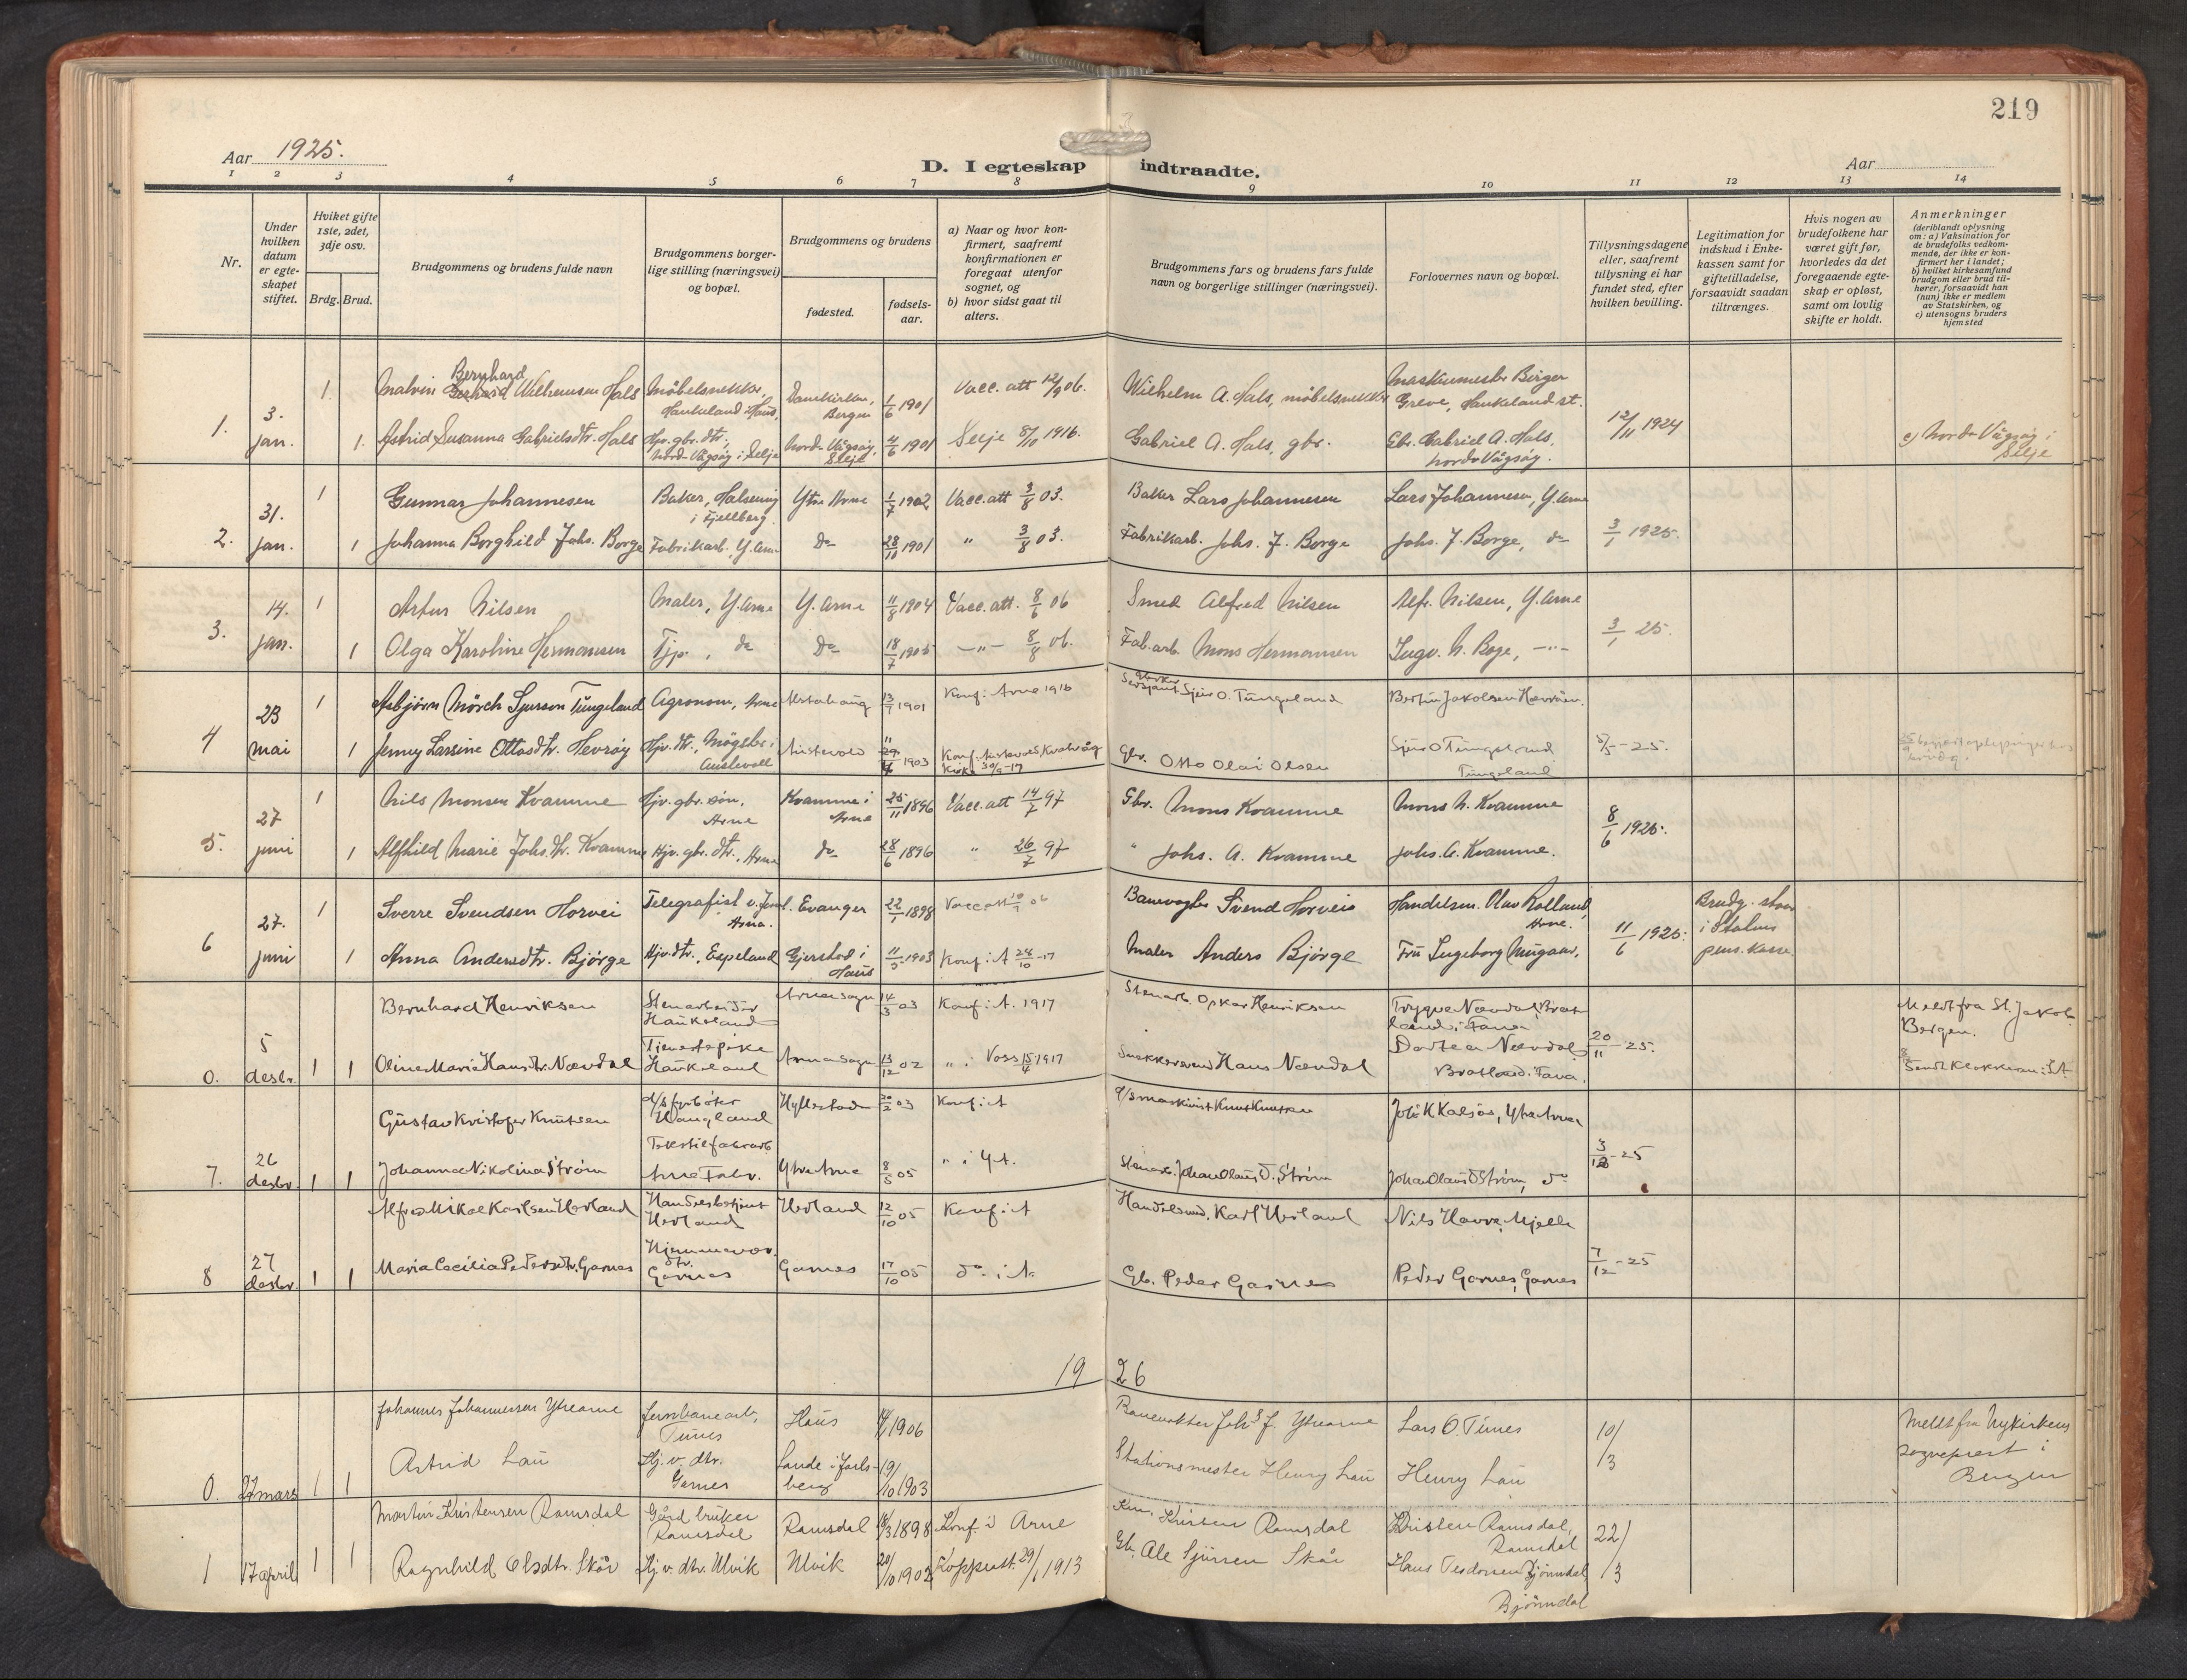 219
Aar 1925.
D. I egteskap indtraadte.
Aar
1 2 3 4 5 6 7 8 9 10 11 12 13 14
Nr.
Under hvilken datum er egte-skapet stiftet.
Hviket gifte 1ste, 2det, 3dje osv.
Brdg. Brud.
Brudgommens og brudens fulde navn
Brudgommens borger-lige stilling (næringsvei) og bopæl.
Brudgommens og brudens
fødested.
fødsels-aar.
a) Naar og hvor kon-firmert, saafremt konfirmationen er foregaat utenfor sognet, og
b) hvor sidst gaat til alters.
Brudgommens fars og brudens fars fulde navn og borgerlige stillinger (næringsvei).
Forlovernes navn og bopæl.
Tillysningsdagene eller, saafremt tillysning ei har fundet sted, efter hvilken bevilling.
Legitimation for indskud i Enke-kassen samt for giftetilladelse, forsaavidt saadan tiltrænges.
Hvis nogen av brudefolkene har været gift før, hvorledes da det foregaaende egte-skap er opløst, samt om lovlig skifte er holdt.
Anmerkninger (deriblandt oplysning om: a) Vaksination for de brudefolks vedkom-mende, der ikke er kon-firmert her i landet; b) hvilket kirkesamfund brudgom eller brud til-hører, forsaavidt han (hun) ikke er medlem av Statskirken, og c) utensogns bruders hjemsted
1. 3. jan. 1. Malvin Bernhard Wilhelmsen Hals Møbelsnekker, Haukeland Haus, Domkirken, Bergen 1/6 1901 Vacc. att 12/9 06. Wilhelm A. Hals, møbelsnekker Maskinmester Birger Greve, Haukeland st. 12/11 1924
1. Astrid Susanna Gabrielsdtr. Hals Hjv. gbr. dtr., Nordr Vågsøy i Selje Nordr Vågsøy, Selje 4/6 1901 Selje 8/10 1916. Gabriel A. Hals, gbr. Gbr. Gabriel A. Hals, Nordr Vågsøy. c) Nordr Vågsøy i Selje
2. 31. jan. 1 Gunnar Johannesen Baker, Halsenøy i Fjellberg. Ytre Arne 1/7 1902 Vacc. att 3/8 03. Baker Lars Johannesen Lars Johannesen, Y. Arne 3/1 1925.
1 Johanna Borghild Johs. Borge Fabrikarb., Y. Arne Do 28/11 1901 " 3/8 03. Fabrikarb. Johs. J. Borge Johs. J. Borge, do
3. 14. jan. 1 Artur Nilsen Maler, Y. Arne Y. Arne 11/8 1904 Vacc. att. 8/6 06 Smed Alfred Nilsen Alfr. Nilsen, Y. Arne 3/1 25.
1 Olga Karoline Hermansen Tjp., do Do 18/7 1905 —"— 8/8 06. Fab. arb. Mons Hermansen Ingv. N. Boge, —"—
4 23 mai 1 Asbjørn Mörch Sjursen Tungeland Agronom, Arne 13/7 1901 Konf. i Arne 1916 Sersjant Sjur O. Tungeland Bertin Jakobsen Hevrøen.
1 Jenny Larsine Ottosdtr. Hevrøy Hjv. dtr., Møgster i Austevoll Austevold 1903 Konf. Austevold, Kirke 30/9-17 Gbr. Otto Olai Olsen Sjur O Tungeland Tungeland 5/5 -25.
5. 27 juni 1 Nils Monsen Kvamme Hjv. gbr. søn, Arne Kvamme i Arne 25/11 1896 Vacc. att 14/7 97 Gbr. Mons Kvamme Mons N. Kvamme 8/6 1925.
1 Alfhild Marie Johs. dtr. Kvamme Hjv. gbr. dtr., Arne do 28/6 1896 " 26/7 97 " Johs. A. Kvamme Johs. A. Kvamme.
6 27. juni 1 Sverre Svendsen Horvei Telegrafist v. Jernb. Arna. Evanger 22/1 1898 Vacc att 10/7 06 Banevogter Svend Horvei Handelsm. Olav Rolland, Arne. 11/6 1925. Brudg. staar i Statens pens. kasse.
1 Anna Andersdtr. Bjørge Hjv. dtr., Espeland Gjerstad i Haus 11/5 1903 Konf. i A 24/10-17 Maler Anders Bjørge Fru Ingeborg Mugaas,
0. 5 desbr. 1 Bernhard Henriksen Stenarbeider Haukeland Arna sogn 14/3 03 Konf. i A. 1917 Stenarb. Oskar Henriksen Trygve Nævdal, Bratland i Fana 20/11 -25. Meldt fra St. Jakob Bergen.
1 Oline Maria Hansdtr. Nævdal Tjenestepike Haukeland Arna sogn 13/12 02 " i Voss 15/4 1917 Snekkersvend Hans Nævdal Dortea Nævdal Bratland i Fana.
7. 26 desbr. 1 Gustav Kristofer Knutsen d/s fyrbøter Haugland Hyllestad 20/2 03 Konf. i A d/s maskinist Knut Knutsen Joh K Kalsås, Ytre Arna 3/12 -25
1 Johanna Nikolina Strøm Tekstilfabrarb Arne Fabr. Ytre Arne 8/5 05 " i YA. Stenarb. Johan Olaus D. Strøm Johan Olaus D Strøm, do
8 27 desbr. 1 Alfred Mikal Karlsen Herland Handelsbetjent Herland Herland 12/10 05 Konf i A Handelsmd. Karl Herland Nils Havre, Mjelle 7/12 -25
1 Maria Cecilia Pedersdtr. Garnes Hjemmevær. dtr. Garnes Garnes 17/10 05 do. i A. Gb. Peder Garnes Peder Garnes, Garnes
1926
0. 27 mars 1 Johannes Johannessen Ytrearne Jernbanearb., Tunes Haus 1906 Banevokter Johs J. Ytrearne Lars O. Tunes 10/3 Meldt fra Nykirkens sogneprest i Bergen
1 Astrid Lau Hj. v. dtr. Garnes Sande i Jarlsberg 19/10 1903 Stationsmester Henry Lau Henry Lau
1 17 april 1 Martin Kristensen Ramsdal Gårdbruker Ramsdal Ramsdal 18/3 1898 Konf. i Arne Kristen Ramsdal Kristen Ramsdal, Ramsdal 22/3
1 Ragnhild Olsdtr. Skår Hj. v. dtr. Ulvik Ulvik 20/10 1902 Koppeatt. 29/1 1913 Gb. Ole Sjursen Skår Hans Teodorsen Bjørndal, Bjørndal